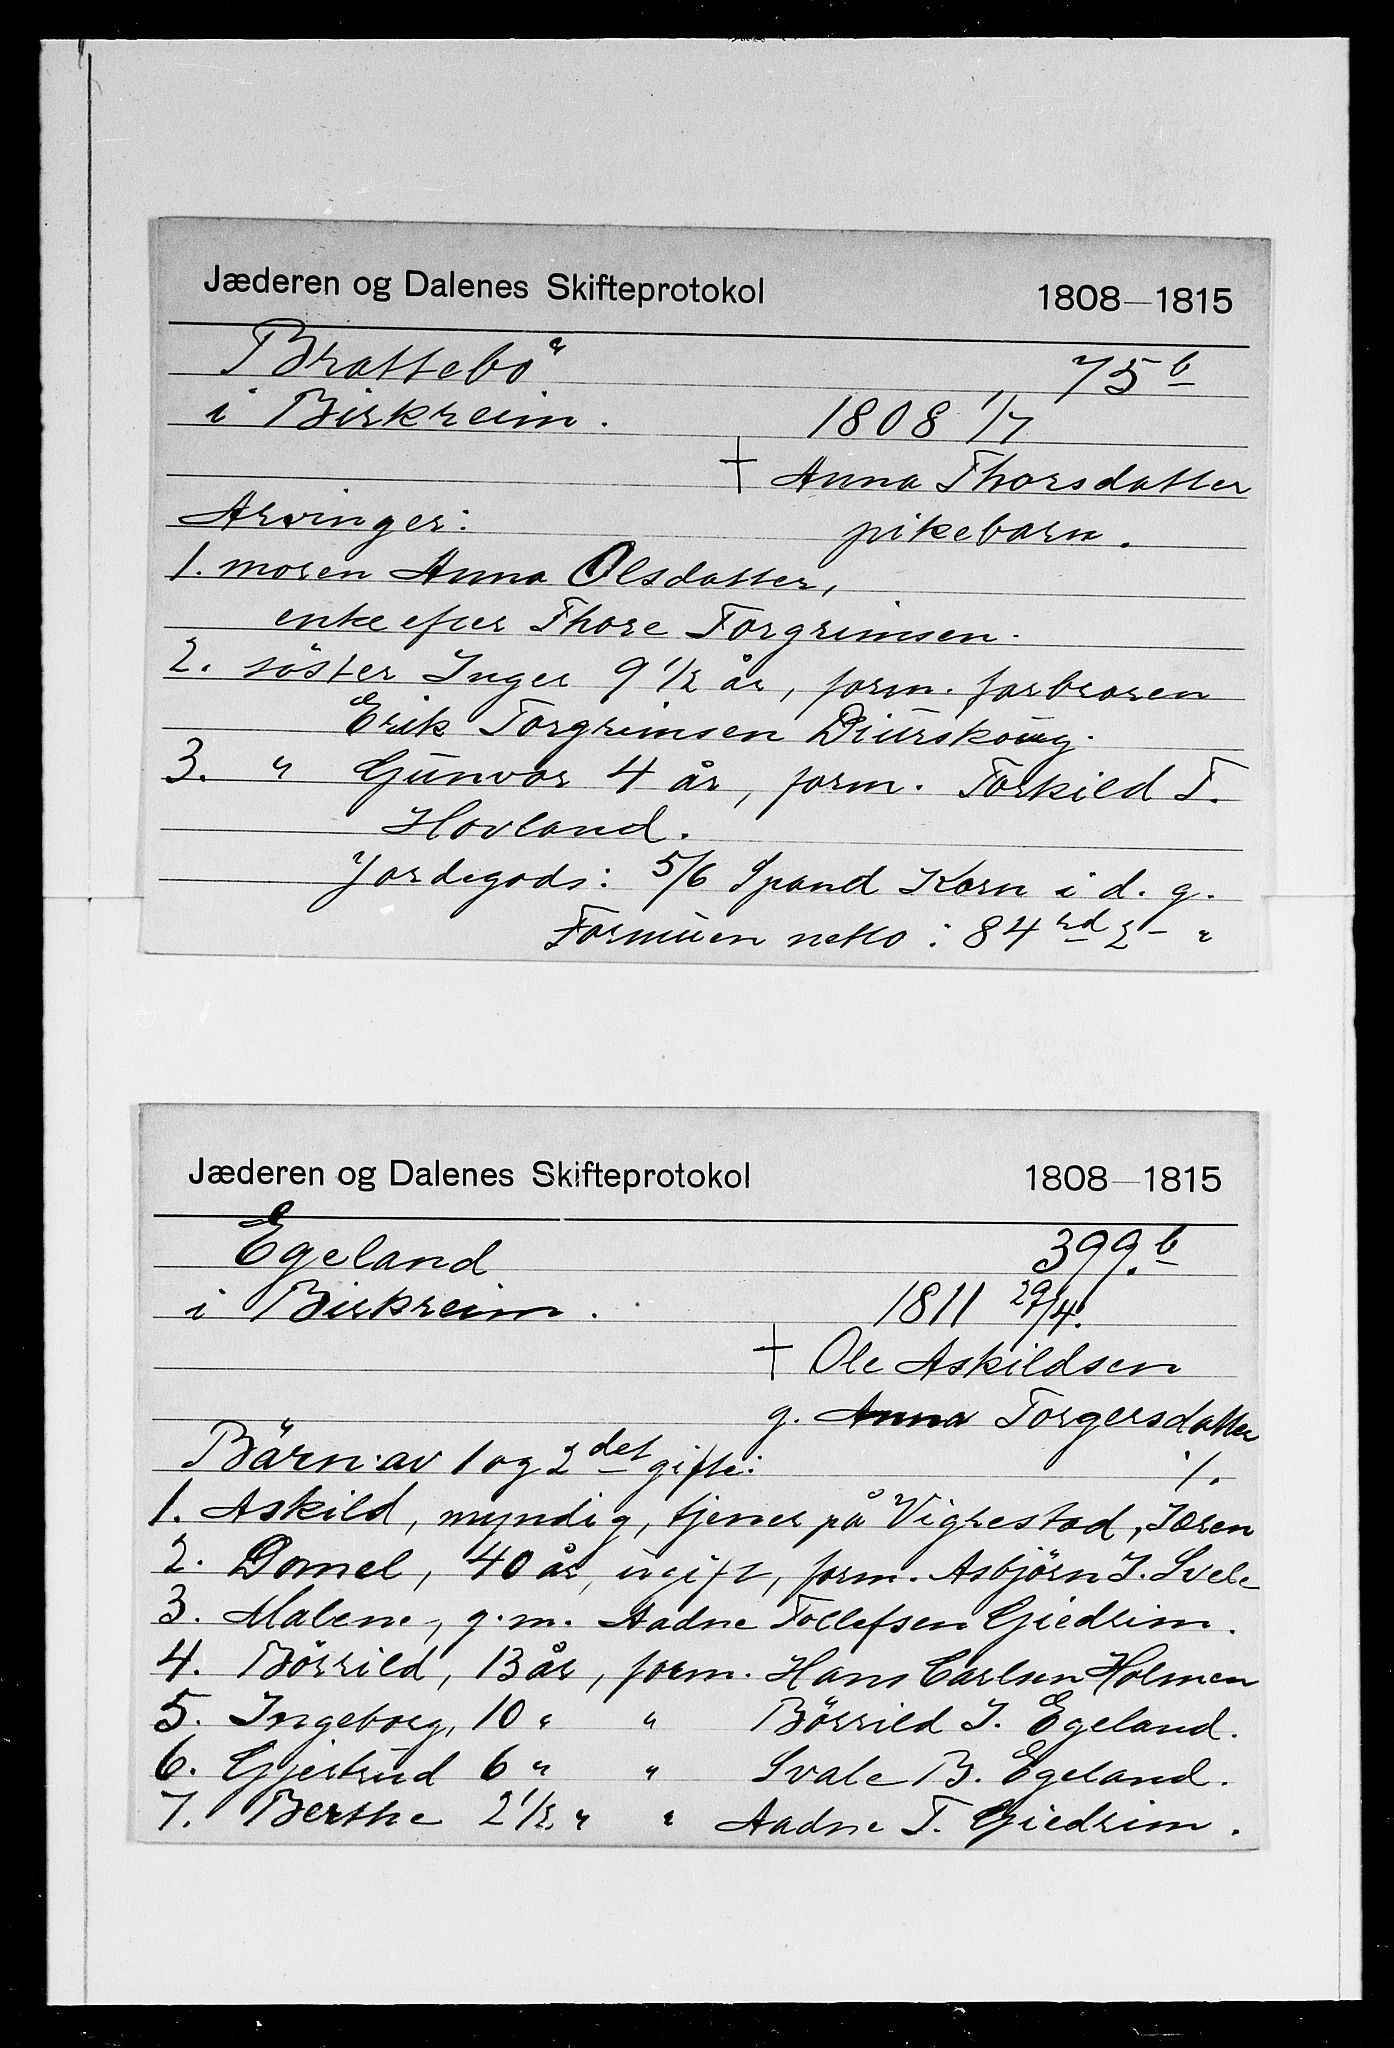 Jæderen og Dalenes Skifteprotokol 1808—1815
Brattebö 75 b
i Birkreim. 1808 1/7
† Anna Thorsdatter
Arvinger: pikebarn.
1. moren Anna Olsdatter,
enke efter Thore Torgrimsen.
2. söster Inger 9 1/2 år, form. farbroren
Erik Torgrimsen Diurskoug.
3. " Gunvor 4 år, form. Torkild T.
Hovland.
Jordegods: 5/6 Spand Korn i d. g.
Formuen netto: 84 rd 2 - "
Jæderen og Dalenes Skifteprotokol 1808—1815
Egeland 399. b
i Birkreim. 1811 29/4.
† Ole Askildsen
g. Anna Torgersdatter
Börn av 1 og 2 det gifte: ./.
1. Askild, myndig, tjener på Vigrestad, Jæren
2. Domel, 40 år, ugift, form. Asbjörn J. Svele
3. Malene, g.m. Aadne Tollefsen Gjedrim.
4. Börrild, 13 år, form. Hans Carlsen Holmen
5. Ingeborg, 10 " " Börrild J. Egeland.
6. Gjertrud 6 " " Svale B. Egeland.
7. Berthe 2 1/2 " " Aadne T. Giedrim.